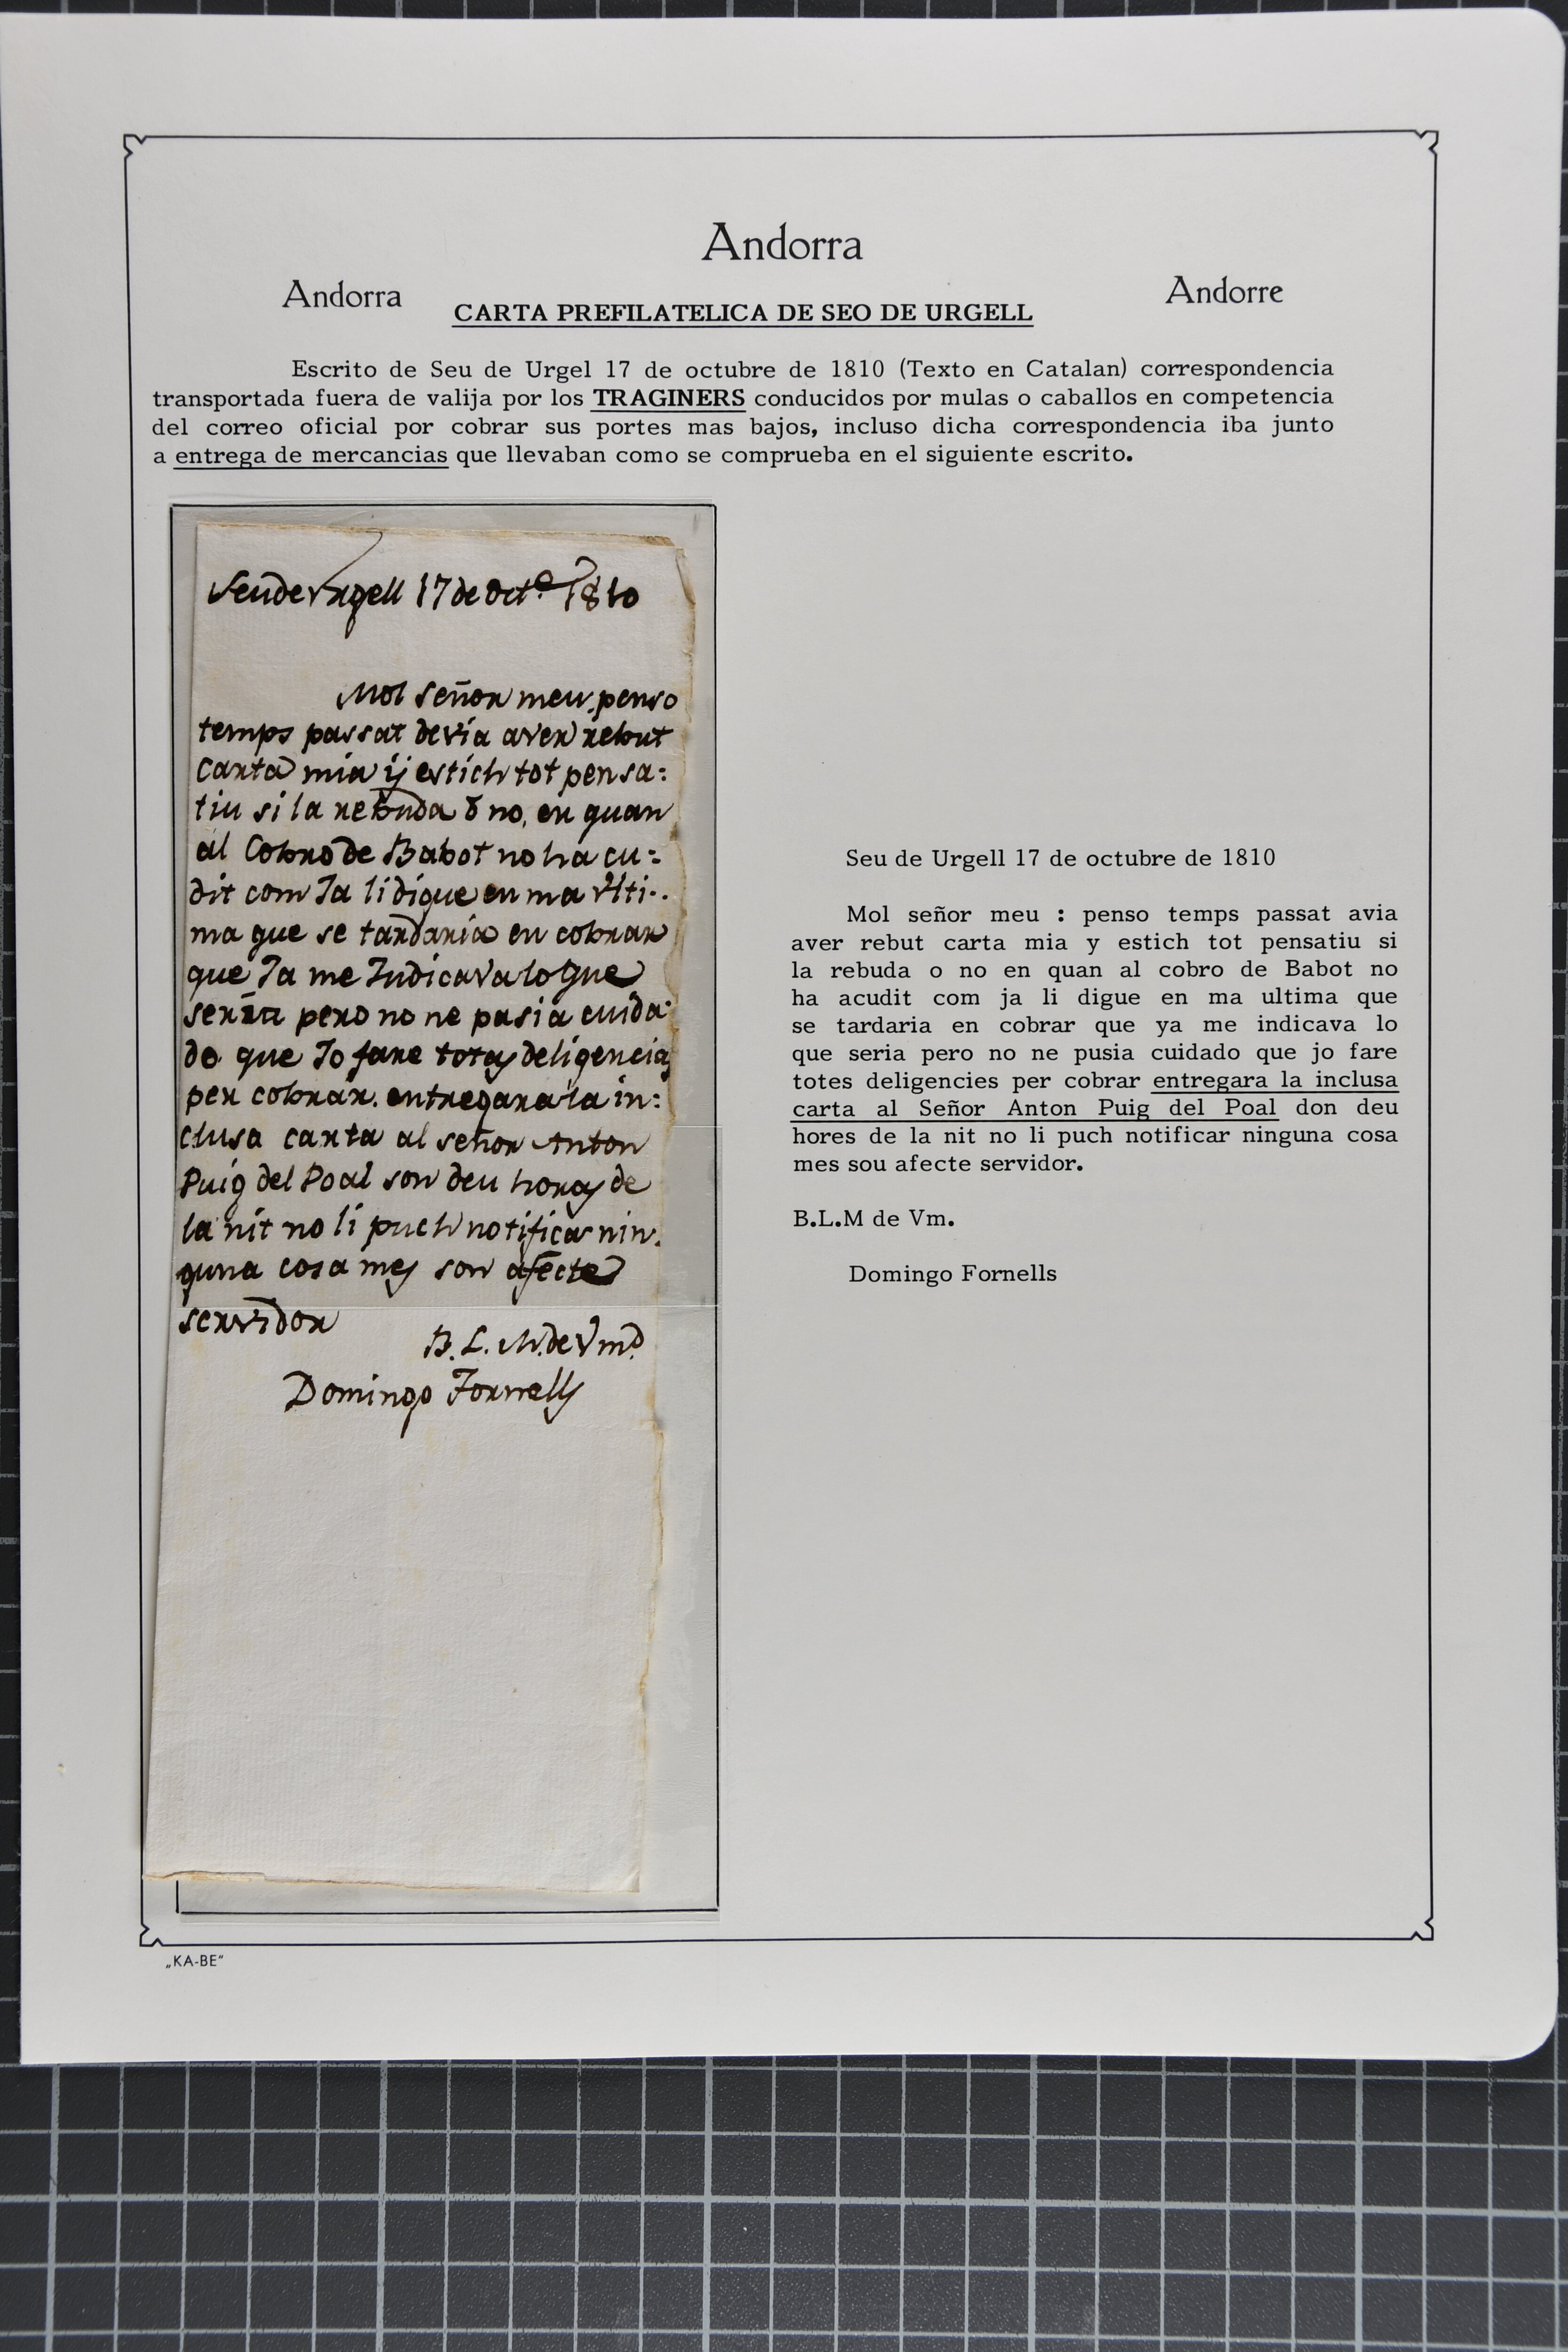 Andorra
Andorra
Andorre
CARTA PREFILATELICA DE SEO DE URGELL
Escrito de Seu de Urgel 17 de octubre de 1810 (Texto en Catalan) correspondencia
transportada fuera de valija por los TRAGINERS conducidos por mulas o caballos en competencia
del correo oficial por cobrar sus portes mas bajos, incluso dicha correspondencia iba junto
a entrega de mercancias que llevaban como se comprueba en el siguiente escrito.
Seu de Vrgell 17 de Oct.e 1810
Mol Señor meu. penso
temps passat devia aver rebut
Carta mia ij estich tot pensa:
tiu si la rebuda ó no, en quan
al Cobro de Babot no ha cu:
dit com Ja li digue en ma Vlti..
ma que se tardaria en cobrar
que Ja me Indicava lo que
seria pero no ne pasia cuida:
do que Jo fare totas deligencias
per cobrar. entregara la in:
clusa carta al señor Anton
Puig del Poal son deu horas de
la nit no li puch notificar nin.
guna cosa mes son afecte
servidor
B. L. M. de Vmd.
Domingo Fornells
Seu de Urgell 17 de octubre de 1810
Mol señor meu : penso temps passat avia
aver rebut carta mia y estich tot pensatiu si
la rebuda o no en quan al cobro de Babot no
ha acudit com ja li digue en ma ultima que
se tardaria en cobrar que ya me indicava lo
que seria pero no ne pusia cuidado que jo fare
totes deligencies per cobrar entregara la inclusa
carta al Señor Anton Puig del Poal don deu
hores de la nit no li puch notificar ninguna cosa
mes sou afecte servidor.
B.L.M de Vm.
Domingo Fornells
„KA-BE“